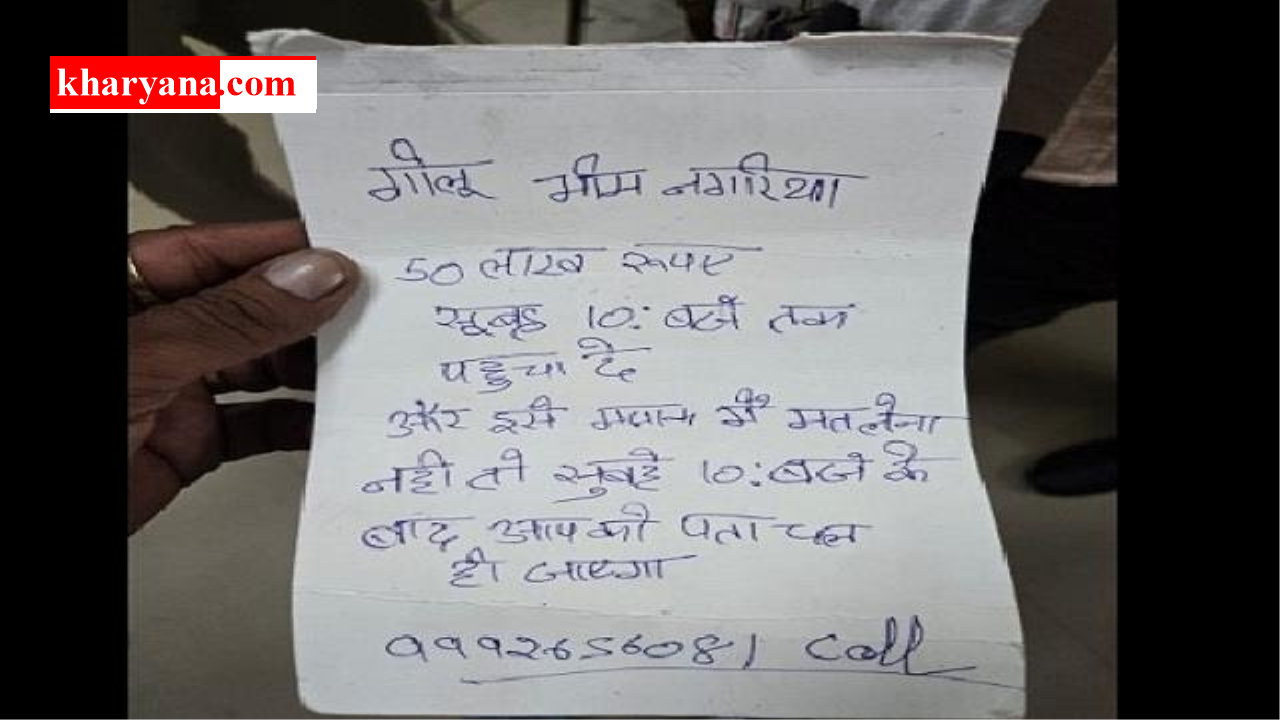 kharyana.com
गोलू भीम नगरिया
50 लाख रूपए
सूबह 10: बजे तक
पहुचा दे
और इसे मजाक मैं मत लेना
नही तो सुबहे 10: बजे के
बाद आपको पता चल
ही जाएगा
9992656081 Call